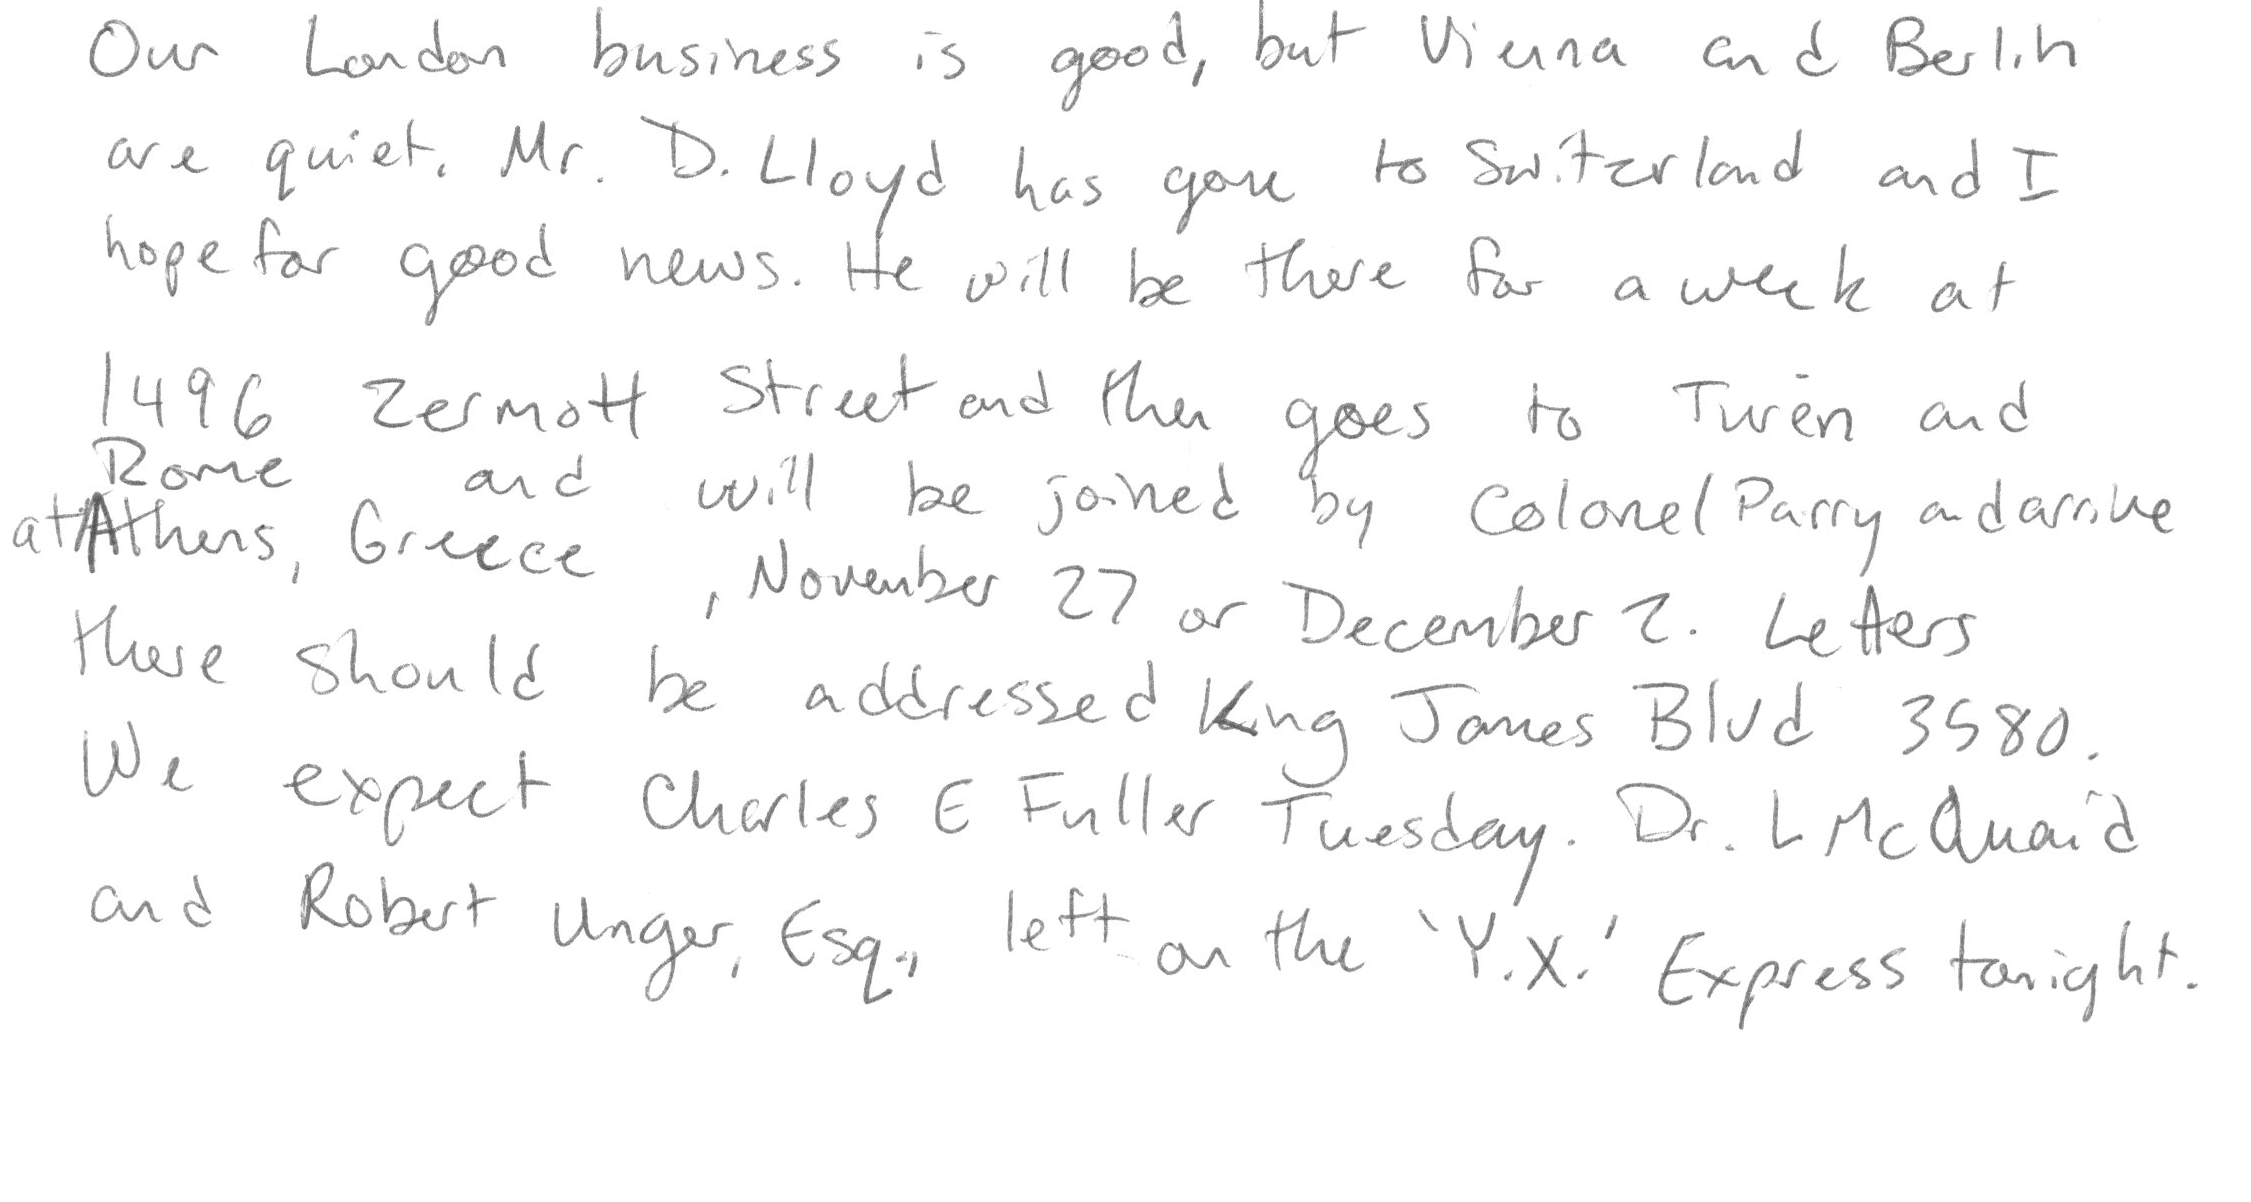 Our London business is good, but Vienna and Berlin
are quiet. Mr. D. Lloyd has gone to Switzerland and I
hope for good news. He will be there for a week at
1496 Zermott Street and then goes to Turen and
Rome and will be joined by Colonel Parry and arrive
at Athens, Greece, November 27 or December 2. Letters
there should be addressed King James Blvd 3580.
We expect Charles E Fuller Tuesday. Dr. L McQuaid
and Robert Unger, Esq., left on the 'Y.X.' Express tonight.